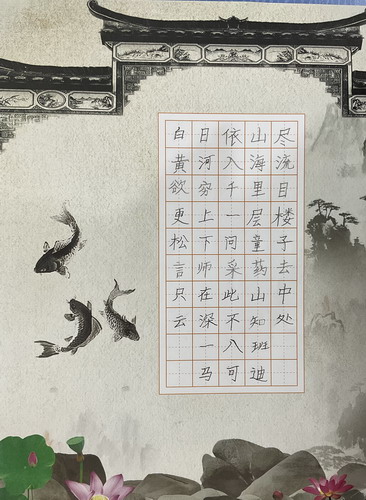 白日依山尽
黄河入海流
欲穷千里目
更上一层楼
松下问童子
言师采药去
只在此山中
云深不知处
一八班
马可迪